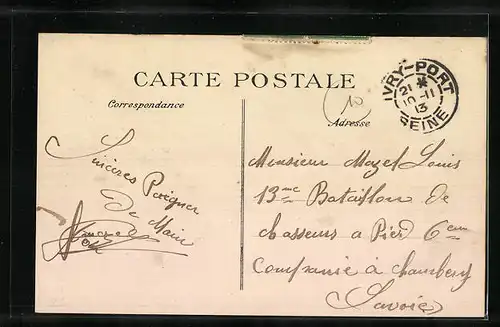 CARTE POSTALE
Correspondance
Adresse
IVRY-PORT
21 *
10-11
13
SEINE
10
Sincères Poigner
De Main
Monsieur Mazel Louis
13me Bataillon de
chasseurs a Pied 6em
Compranie à Chambery
Savoie